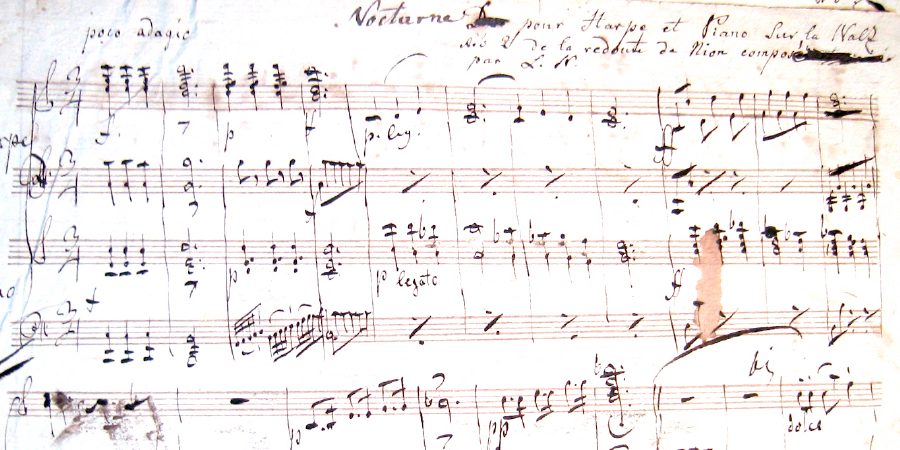 Nocturne pour Harpe et Piano sur la Walz
No 2 de la redoute de Nion composé
par L. N.
poco adagio
f p f p. leg. ff
p p legato ff
f
bis
p pp dolce